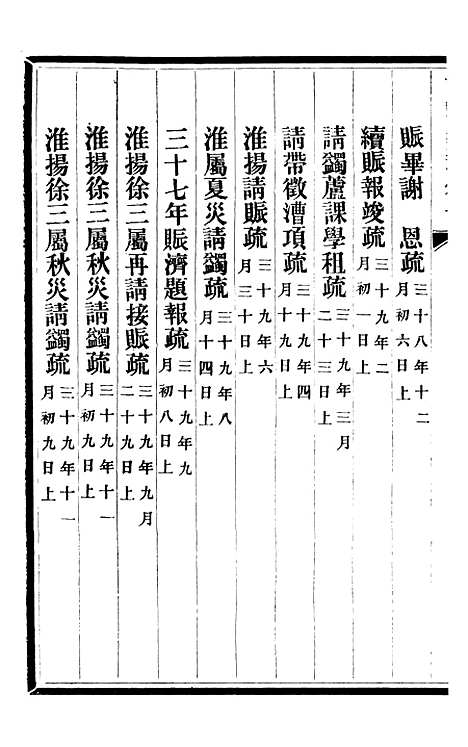 賑畢謝　恩疏三十八年十二月初六日上
續賑報竣疏三十九年二月初一日上
請蠲蘆課學租疏三十九年三月二十三日上
請帶徵漕項疏三十九年四月十九日上
淮揚請賑疏三十九年六月三十日上
淮屬夏災請蠲疏三十九年八月十四日上
三十七年賑濟題報疏三十九年九月初八日上
淮揚徐三屬再請接賑疏三十九年九月二十九日上
淮揚徐三屬秋災請蠲疏三十九年十一月初九日上
淮揚徐三屬秋災請蠲疏三十九年十一月初九日上